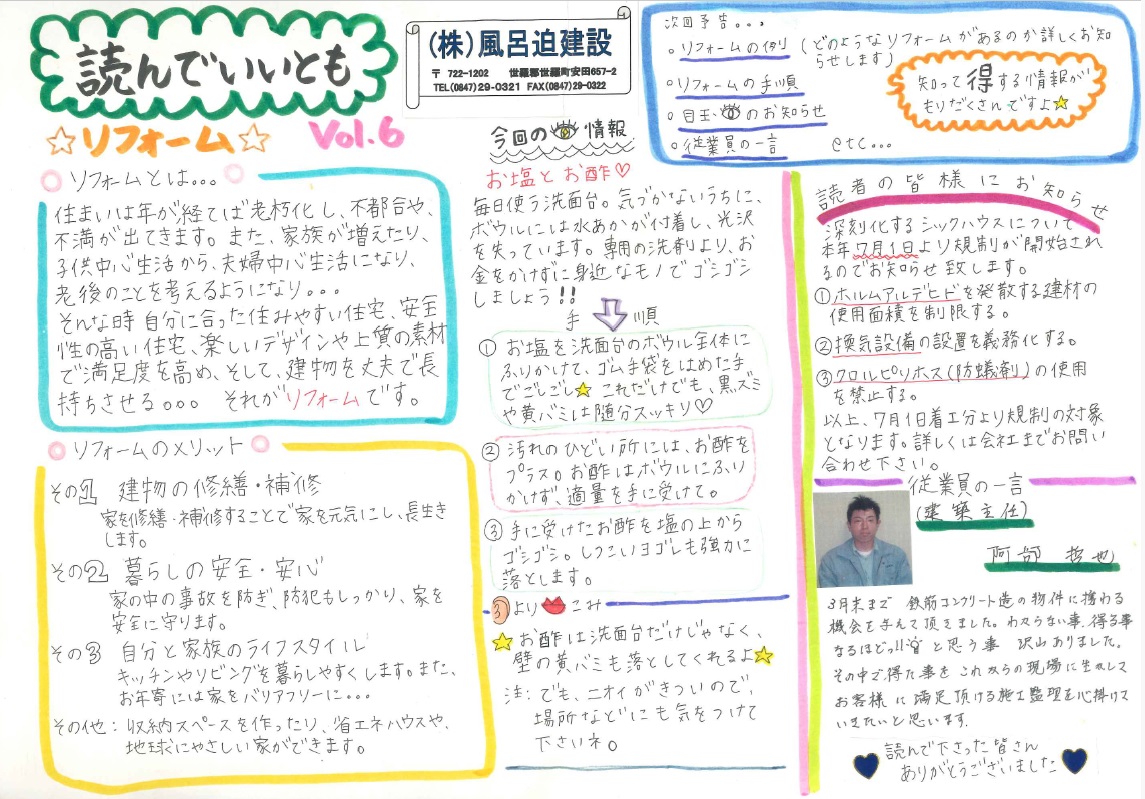 読んでいいとも
☆リフォーム☆ Vol.6
(株)風呂迫建設
〒 722-1202 世羅郡世羅町安田657-2
TEL(0847)29-0321 FAX(0847)29-0322
次回予告...,
○リフォームの例 (どのようなリフォームがあるのか詳しくお知
らせします)
○リフォームの手順
○目玉・のお知らせ
○従業員の一言 etc...
知って得する情報が
もりだくさんですよ☆
リフォームとは...
住まいは年が経てば老朽化し、不都合や、
不満が出てきます。また、家族が増えたり、
子供中心生活から、夫婦中心生活になり、
老後のことを考えるようになり...
そんな時自分に合った住みやすい住宅、安全
性の高い住宅、楽しいデザインや上質の素材
で満足度を高め、そして、建物を丈夫で長
持ちさせる。。。 それがリフォームです。
リフォームのメリット
その1 建物の修繕・補修
家を修繕・補修することで家を元気にし、長生き
します。
その2 暮らしの安全・安心
家の中の事故を防ぎ、防犯もしっかり、家を
安全に守ります。
その3 自分と家族のライフスタイル
キッチンやリビングを暮らしやすくします。また、
お年寄には家をバリアフリーに...
その他:収納スペースを作ったり、省エネハウスや、
地球にやさしい家ができます。
今回の情報
お塩とお酢♡
毎日使う洗面台。気づかないうちに、
ボウルには水あかが付着し、光沢
を失っています。専用の洗剤より、お
金をかけずに身近なモノでゴシゴシ
しましょう!!
手順
① お塩を洗面台のボウル全体に
ふりかけて、ゴム手袋をはめた手
でごしごし☆ これだけでも、黒ズミ
や黄バミは随分スッキリ♡
② 汚れのひどい所には、お酢を
プラス。お酢はボウルにふり
かけず、適量を手に受けて。
③ 手に受けたお酢を塩の上から
ゴシゴシ。しつこいヨゴレも強力に
落とします。
よりこみ
☆お酢は洗面台だけじゃなく、
壁の黄バミも落としてくれるよ☆
注:でも、ニオイがきついので、
場所などにも気をつけて
下さいネ。
読者の皆様にお知らせ
深刻化するシックハウスについて
本年7月1日より規制が開始され
るのでお知らせ致します。
①ホルムアルデヒドを発散する建材の
使用面積を制限する。
②換気設備の設置を義務化する。
③クロルピリホス(防蟻剤)の使用
を禁止する。
以上、7月1日着工分より規制の対象
となります。詳しくは会社までお問い
合わせ下さい。
従業員の一言
(建築主任)
阿部 哲也
3月末まで 鉄筋コンクリート造の物件に携わる
機会を与えて頂きました。わからない事、得る事
なるほどっ!!と思う事 沢山ありました。
その中で、得た事をこれからの現場に生かして
お客様に満足頂ける施工監理を心掛けて
いきたいと思います。
読んで下さった皆さん
ありがとうございました